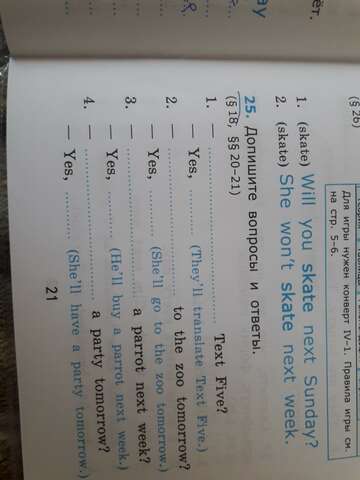 ay
ёт.
(§ 26)
Для игры нужен конверт IV-1. Правила игры см.
на стр. 5-6.
1. (skate) Will you skate next Sunday?
2. (skate) She won't skate next week.
25. Допишите вопросы и ответы.
(§ 18, §§ 20-21)
1. — .......... Text Five?
— Yes, .......... (They'll translate Text Five.)
2. — .......... to the zoo tomorrow?
— Yes, .......... (She'll go to the zoo tomorrow.)
3. — .......... a parrot next week?
— Yes, .......... (He'll buy a parrot next week.)
4. — .......... a party tomorrow?
— Yes, .......... (She'll have a party tomorrow.)
21